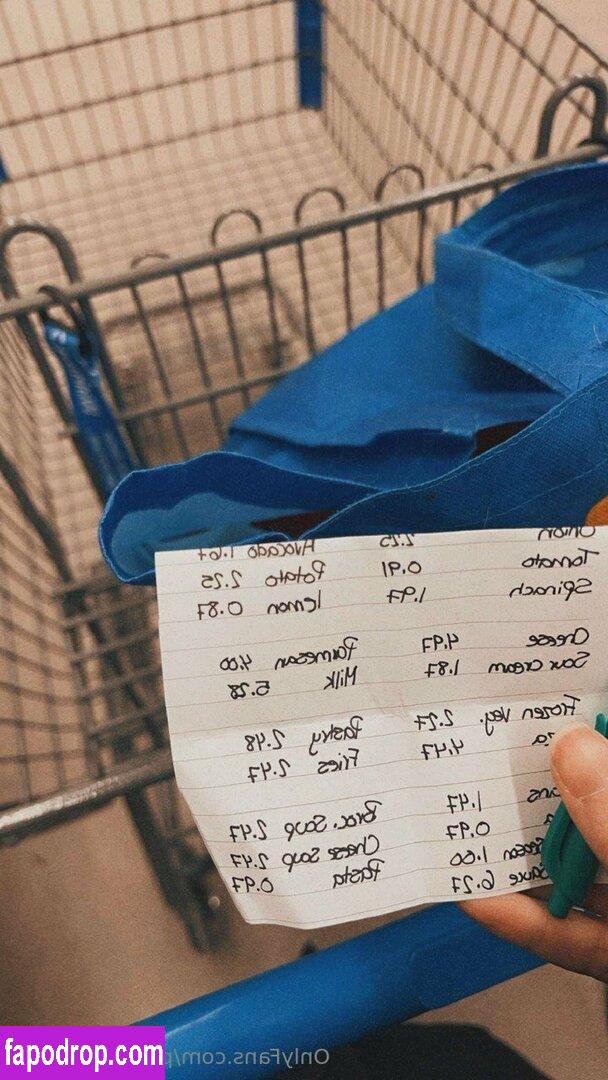 Onion 2.25 Avocado 1.67
Tomato 0.91 Potato 2.25
Spinach 1.97 lemon 0.87
Cheese 4.97 Parmesan 4.00
Sour cream 1.87 Milk 5.28
Frozen veg. 2.27 Pastry 2.48
4.47 Fries 2.47
1.47
0.97 Broc. Soup 2.47
1.00 Cheese Soup 2.47
6.27 Pasta 0.97
OnlyFans.com/p
fapodrop.com